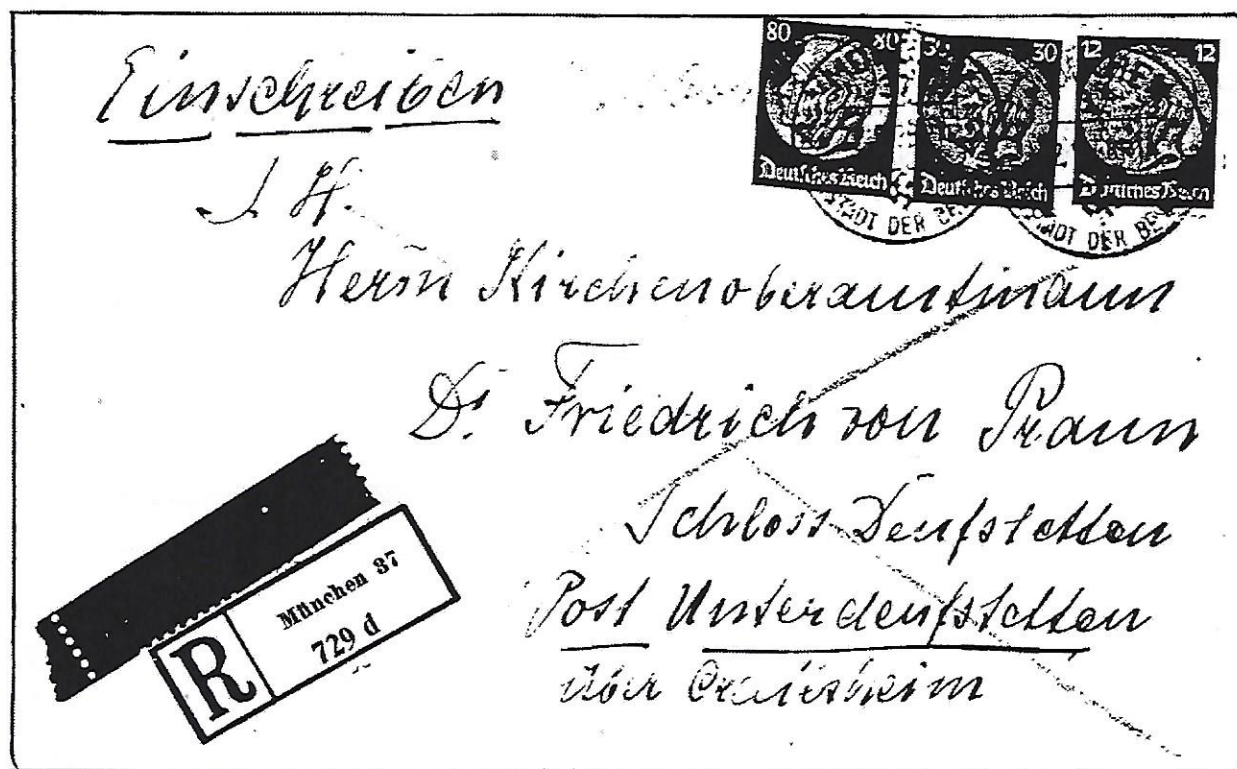 80 80 30 30 12 12
Deutsches Reich Deutsches Reich Deutsches Reich
STADT DER BE
STADT DER BE
Einschreiben
S. H.
Herrn Kirchenoberamtmann
Dr. Friedrich von Praun
Schloss Deufstetten
Post Unterdeufstetten
über Crailsheim
München 37
R 729 d